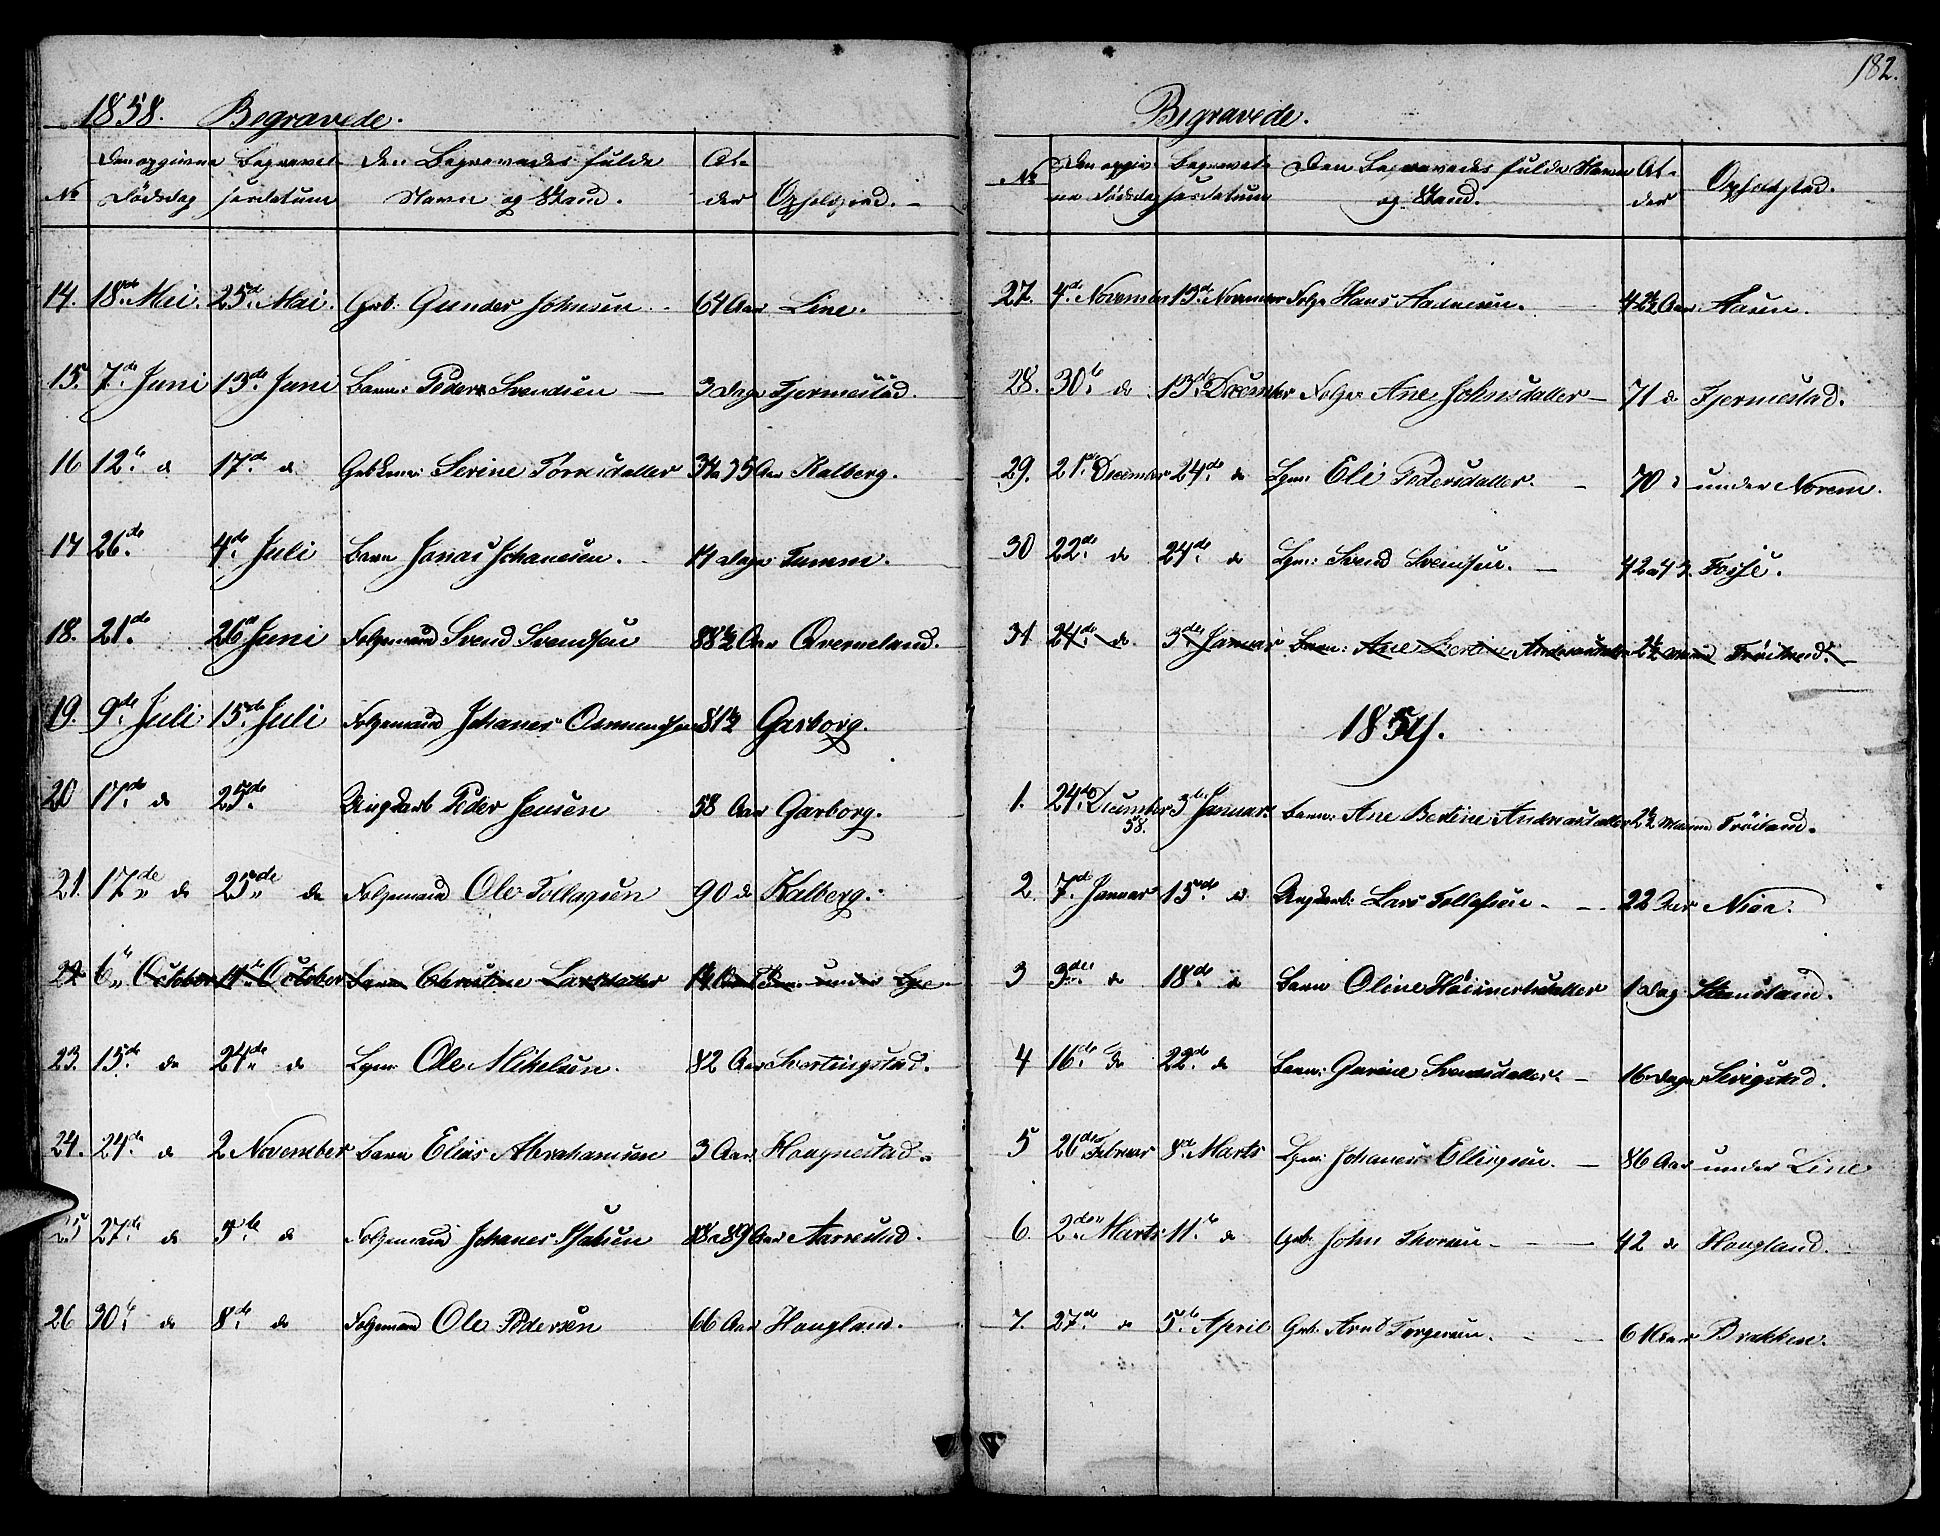 182.
1858. Begravede.
No Den opgivne Dødsdag Begravelsesdatum Den Begravedes fulde Navn og Stand. Alder Opholdssted.
14. 18de Mai. 25de Mai. Gbr: Gunder Johnsen 64 Aar Line.
15. 7de Juni 13de Juni Barn: Peder Svendsen 3 Dage Fjermestad.
16 12te d 17de d Serine Torresdatter 34 a 35 Aar Kalberg.
17 26de 4de Juli Barn Jonas Johanesen. 14 Dage Tumm.
18. 21de 26de Juni Folgemand Svend Svendsen 88½ Aar Qverneland.
19. 9de Juli 15de Juli Folgemand Johanes Osmundsen 81½ Garborg.
20 17de do 25de Ungkarl Peder Jensen 58 Aar Garborg.
21. 17de do 25de do Folgemand Ole Tollagsen 90 do Kalberg.
22 6te October 11te October Barn Christine Larsdatter 14 under
23. 15de do 24de do Lgm: Ole Mikelsen. 82 Aar Svertingstad.
24. 24de do 2 November Barn Elias Abrahamsen 3 Aar Hognestad.
25 27de do 5te do Folgemand Johanes 88 a 89 Aar Aarrestad.
26 30te do 8de do Folgemand Ole Pedersen 66 Aar Hougland.
Begravede.
No Den opgivne Dødsdag Begravelsesdatum Den Begravedes fulde Navn og Stand. Alder Opholdssted.
27. 4de November 13de November Folge Hans Aadnesen. 42½ Aar Aasen.
28. 30te do 13de December Folge Ane Johnsdatter 71 do Fjermestad.
29. 21de December 24de do Lgm: Eli Pedersdatter. 70 do under Norem.
30 22de do 24de do Lgm: Svend Svendsen. 42 a 43. Fosse.
31 24de do 3die Januar Barn: Ane Bertine Andreasdatter 2½ Maaned Frøiland.
1859.
1. 24de December 58. 3die Januar. Barn: Ane Bertine Andreasdatter 2½ Maaned Frøiland.
2. 7de Januar 15de do Ungkarl: Lars Tollefsen 22 Aar Niaa.
3 3die do 18de do Barn Oline Høinertsdatter 1 Dag Steensland.
4 16de do 22de do Barn: Gurine Svendsdatter 16 Dage Sevigstad.
5 26de Februar 8de Marts Lgm: Johanes Ellingsen. 86 Aar under Line
6 2den Marts 11te do Gbr: John Thorsen 42 do Hougland.
7. 27de do 5te April Gbr: Arnt Torgersen. 61 Aar Brekken.